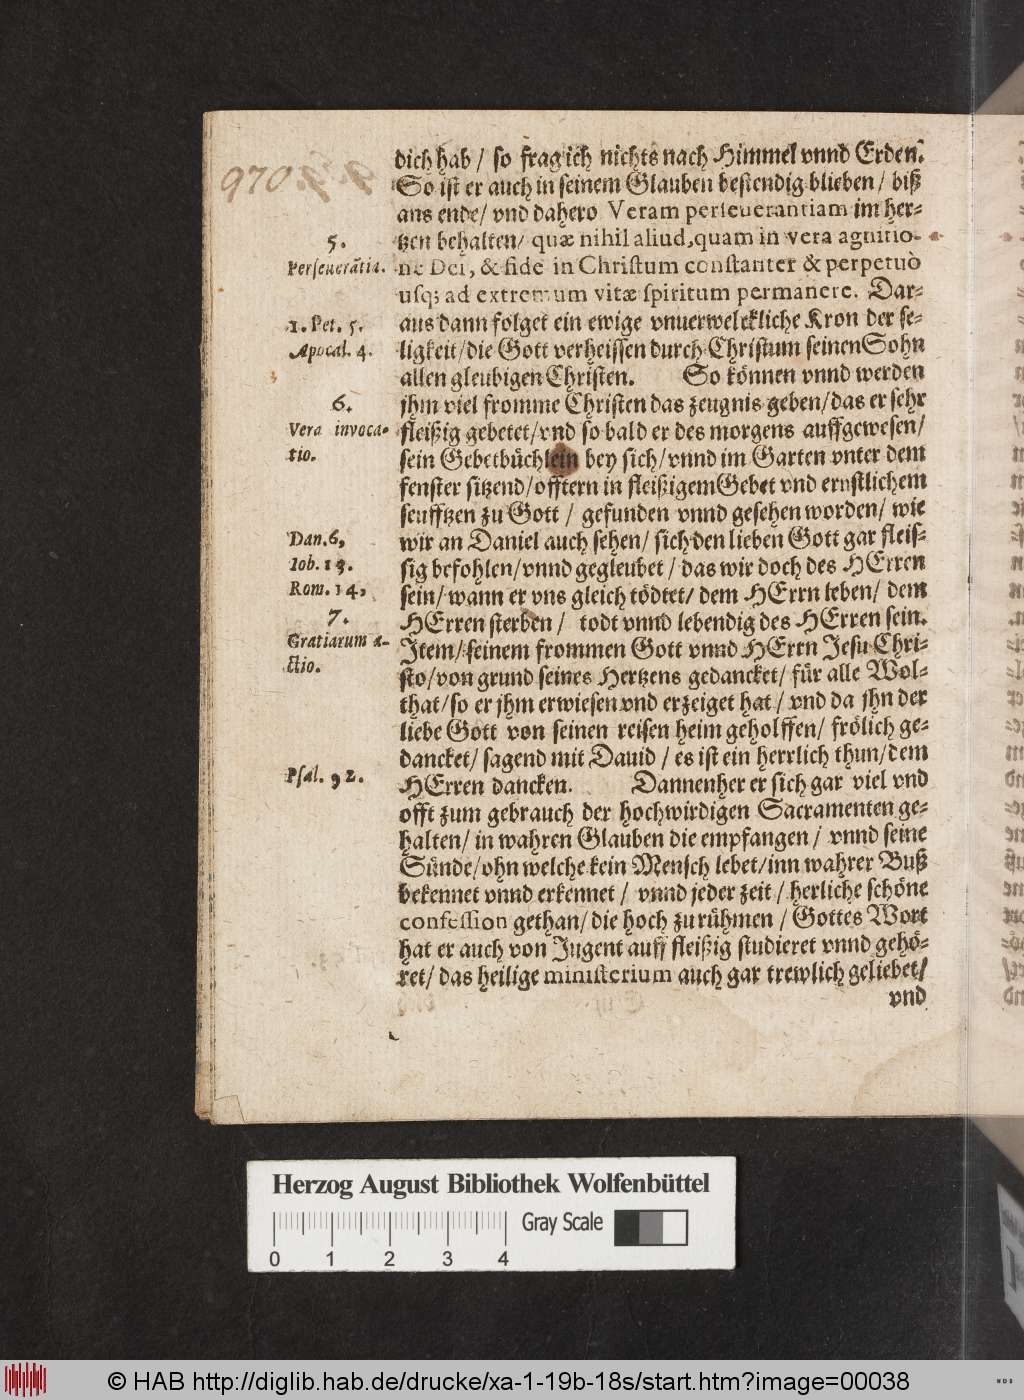 970
dich hab / so frag ich nichts nach Himmel vnnd Erden.
So ist er auch in seinem Glauben bestendig blieben / biß
ans ende / vnd dahero Veram perseuerantiam im her-
5.
tzen behalten / quæ nihil aliud, quam in vera agnitio-
Perseverãtia.
ne Dei, & fide in Christum constanter & perpetuò
usq; ad extremum vitæ spiritum permanere. Dar-
1. Pet. 5.
aus dann folget ein ewige vnuerwelckliche Kron der se-
Apocal. 4.
ligkeit / die Gott verheissen durch Christum seinen Sohn
allen gleubigen Christen. So können vnnd werden
6.
jhm viel fromme Christen das zeugnis geben / das er sehr
Vera invoca-
fleißig gebetet / vnd so bald er des morgens auffgewesen /
tio.
sein Gebetbüchlein bey sich / vnnd im Garten vnter dem
fenster sitzend / offtern in fleißigem Gebet vnd ernstlichem
seufftzen zu Gott / gefunden vnnd gesehen worden / wie
Dan. 6,
wir an Daniel auch sehen / sich den lieben Gott gar fleis-
Iob. 13.
sig befohlen / vnnd gegleubet / das wir doch des HErren
Rom. 14,
sein / wann er vns gleich tödtet / dem HErrn leben / dem
7.
HErren sterben / todt vnnd lebendig des HErren sein.
Gratiarum a-
Item / seinem frommen Gott vnnd HErrn Jesu Chri-
ctio.
sto / von grund seines Hertzens gedancket / für alle Wol-
that / so er jhm erwiesen vnd erzeiget hat / vnd da jhn der
liebe Gott von seinen reisen heim geholffen / frölich ge-
dancket / sagend mit Dauid / es ist ein herrlich thun / dem
Psal. 92.
HErren dancken. Dannenher er sich gar viel vnd
offt zum gebrauch der hochwirdigen Sacramenten ge-
halten / in wahren Glauben die empfangen / vnnd seine
Sünde / ohn welche kein Mensch lebet / inn wahrer Buß
bekennet vnnd erkennet / vnnd jeder zeit / herliche schöne
confession gethan / die hoch zu rühmen / Gottes Wort
hat er auch von Jugent auff fleißig studieret vnnd gehö-
ret / das heilige ministerium auch gar trewlich geliebet /
vnd
Herzog August Bibliothek Wolfenbüttel
Gray Scale
0 1 2 3 4
© HAB http://diglib.hab.de/drucke/xa-1-19b-18s/start.htm?image=00038